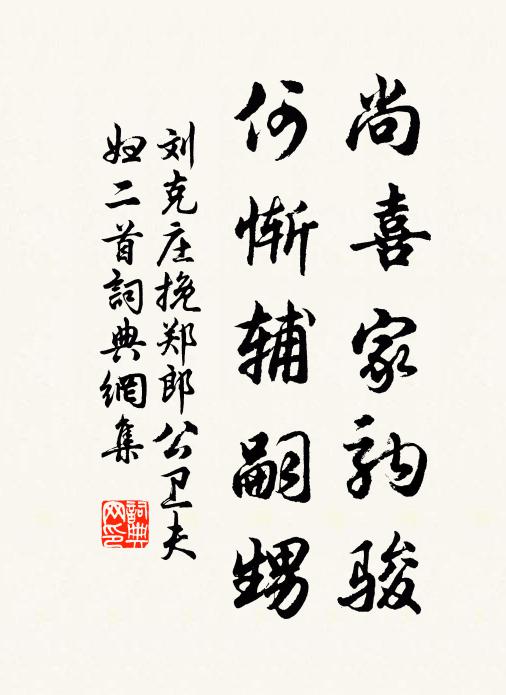 尚喜家驹骏
何惭辅嗣甥
刘克庄挽郑郎公卫夫
妇二首詞典網集
詞典
网印